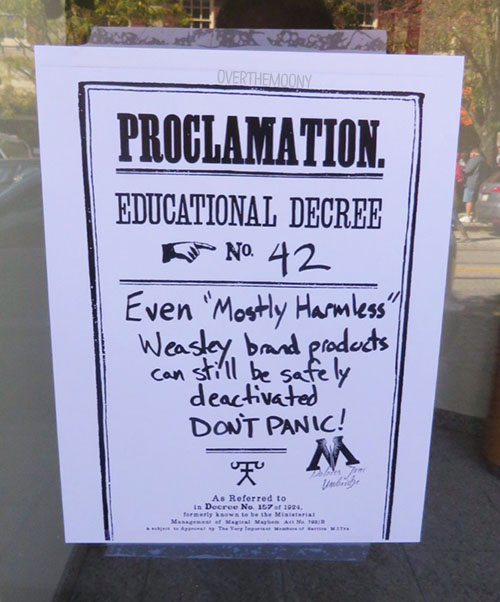 OVERTHEMOONY
PROCLAMATION.
EDUCATIONAL DECREE
No. 42
Even "Mostly Harmless"
Weasley brand products
can still be safely
deactivated
DON'T PANIC!
M
Umbridge
As Referred to
in Decree No. 157 of 1924,
formerly known to be the Ministerial
Management of Magical Mayhem Act No. 792/B
& subject to Approval by The Very Important Members of Section M.17